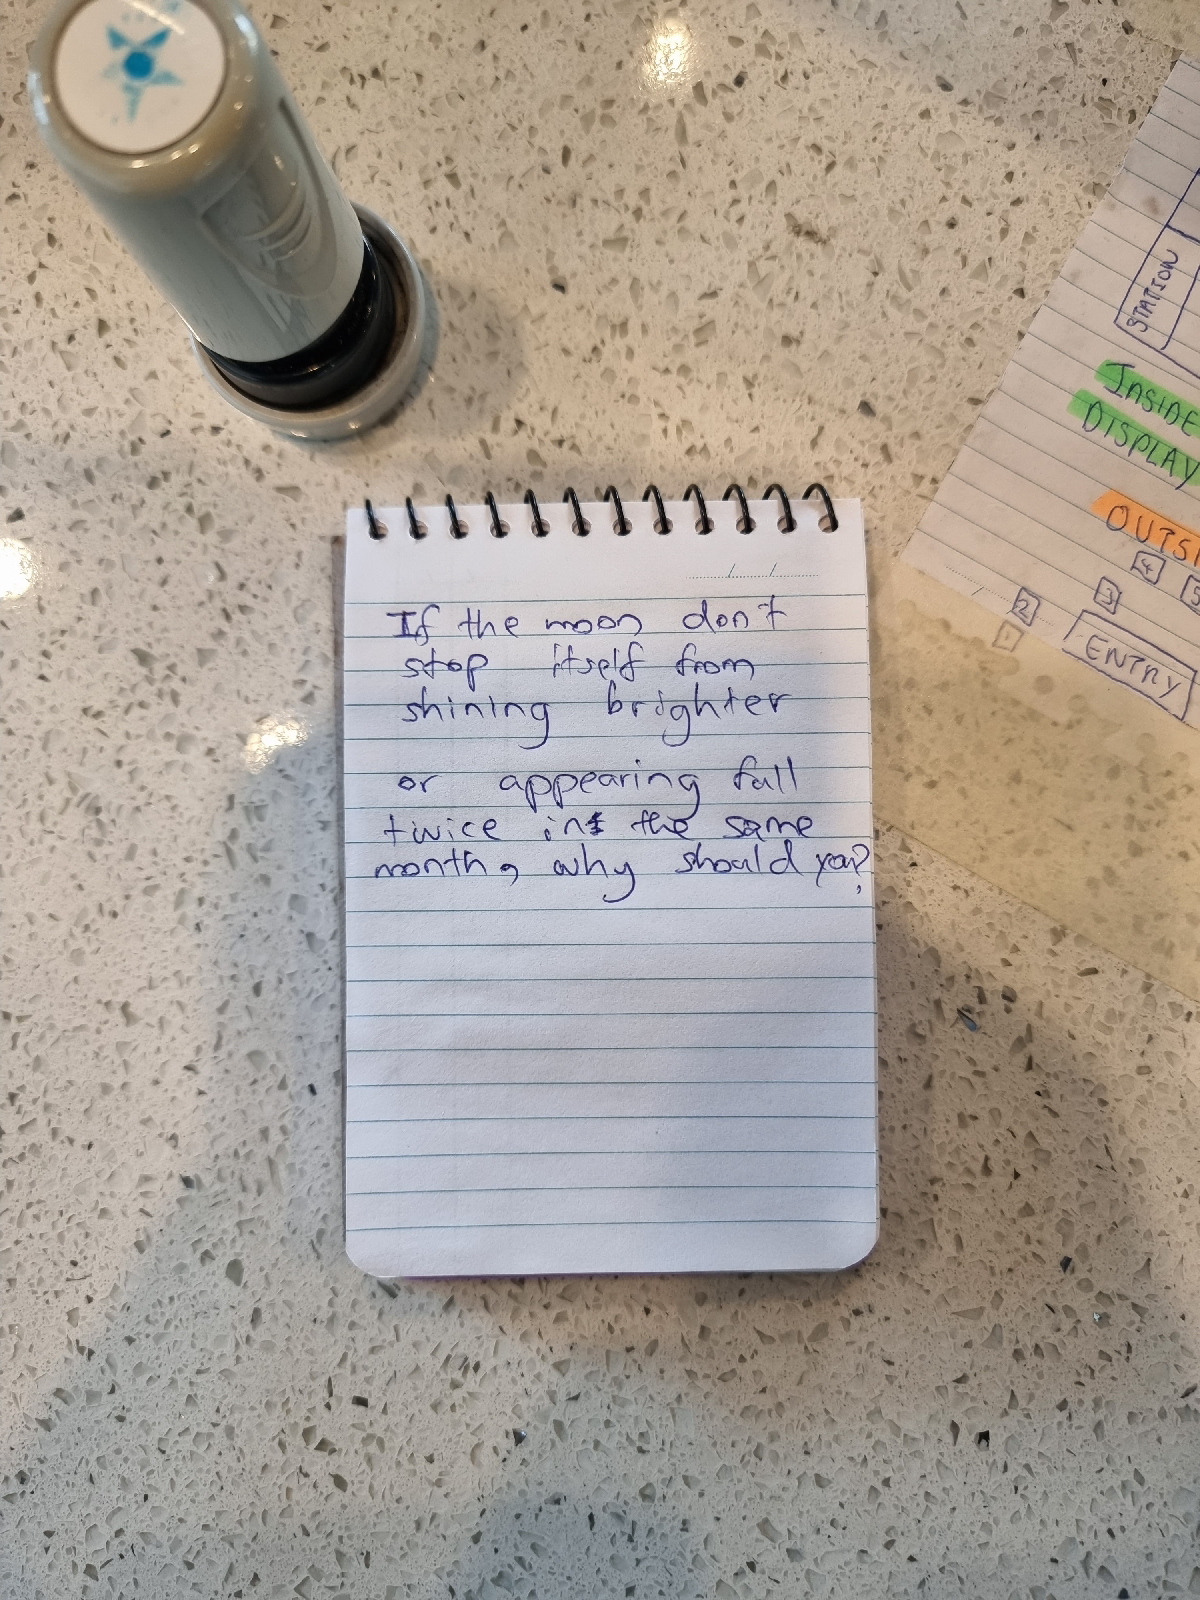 If the moon don't
stop itself from
shining brighter
or appearing full
twice in the same
month, why should you?
STATION
INSIDE
DISPLAY
OUTSI
4 5
2 3
1
ENTRY